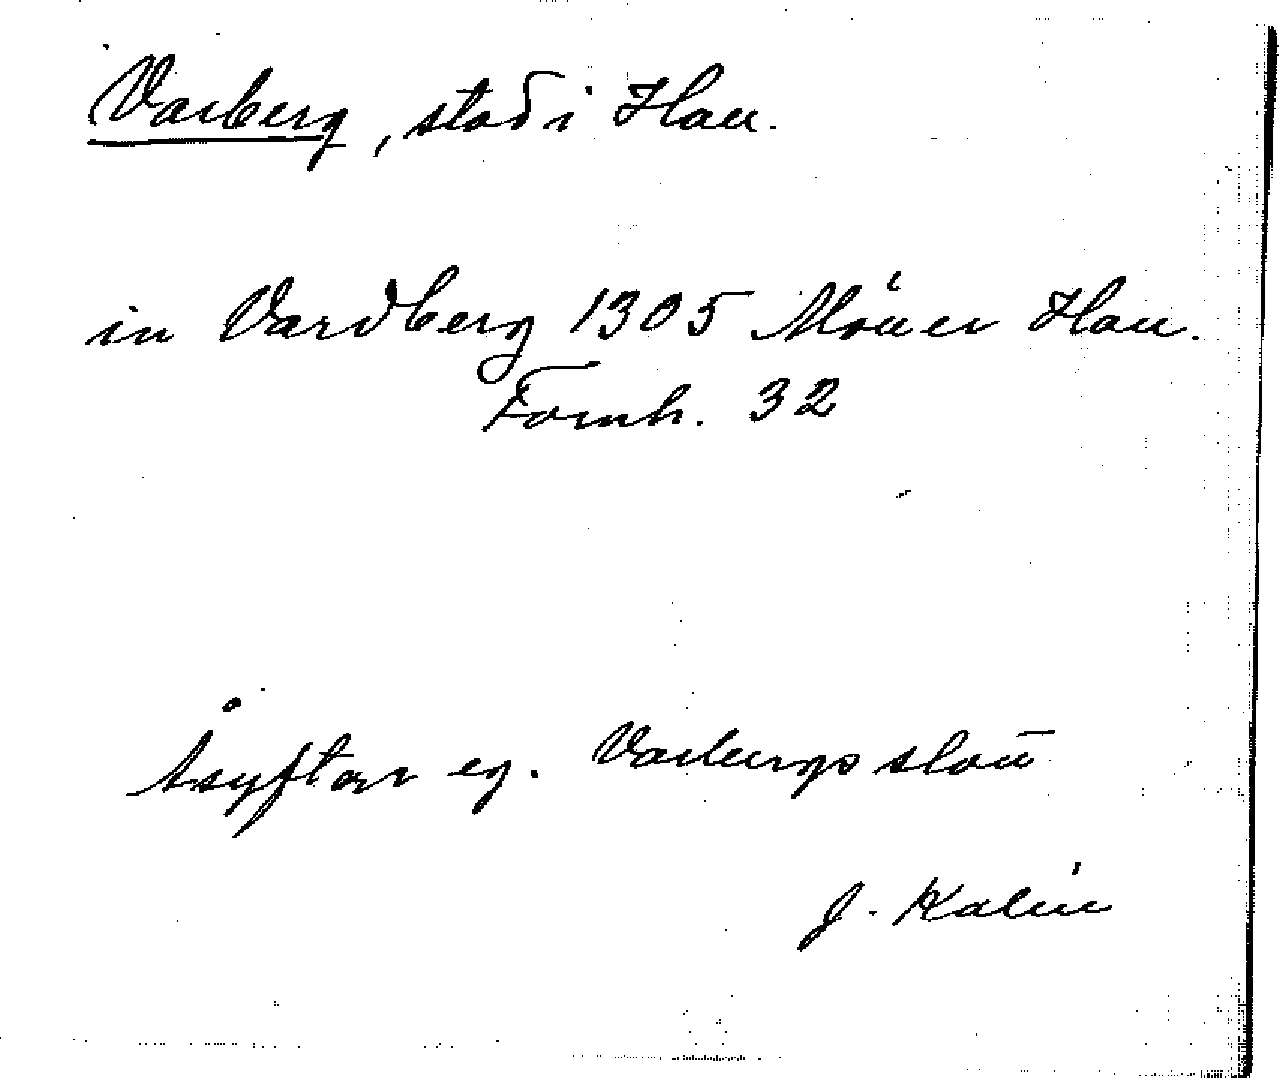 Varberg, stad i Hall.
in Vardberg 1305 Möller Hall.
Fornh. 32
Åsyftar eg. Varbergs slott
J. Kalén